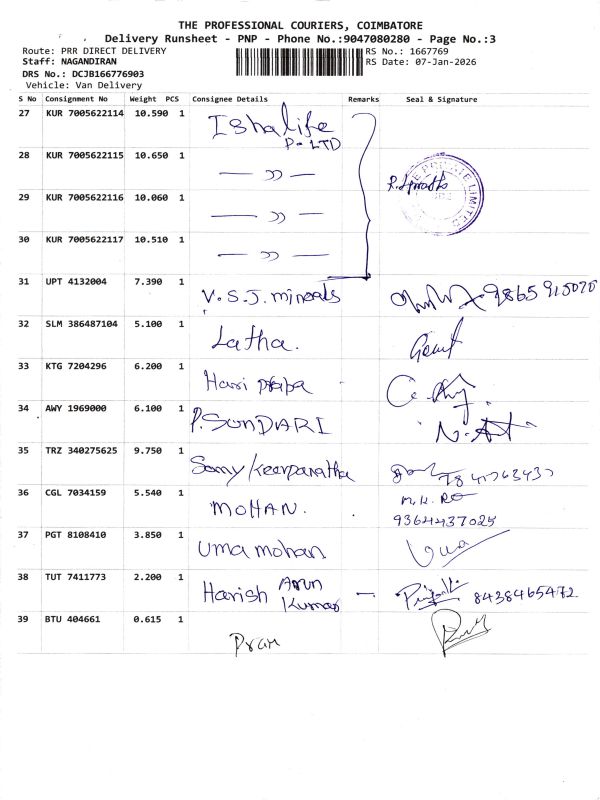 THE PROFESSIONAL COURIERS, COIMBATORE
Delivery Runsheet - PNP - Phone No.:9047080280 - Page No.:3
Route: PRR DIRECT DELIVERY
RS No.: 1667769
Staff: NAGANDIRAN
RS Date: 07-Jan-2026
DRS No.: DCJB166776903
Vehicle: Van Delivery
S No Consignment No Weight PCS Consignee Details Remarks Seal & Signature
27 KUR 7005622114 10.590 1 Isha life
P-LTD
28 KUR 7005622115 10.650 1 — " —
29 KUR 7005622116 10.060 1 — " —
30 KUR 7005622117 10.510 1 — " —
31 UPT 4132004 7.390 1 V.S.J. minerals
32 SLM 386487104 5.100 1 Latha.
33 KTG 7204296 6.200 1 Hari praba
34 AWY 1969000 6.100 1 P. SUNDARI
35 TRZ 340275625 9.750 1 Samy
36 CGL 7034159 5.540 1 MOHAN. 9364437025
37 PGT 8108410 3.850 1 Uma mohan Uma
38 TUT 7411773 2.200 1 Harish Arun Kumar — 8438465472
39 BTU 404661 0.615 1